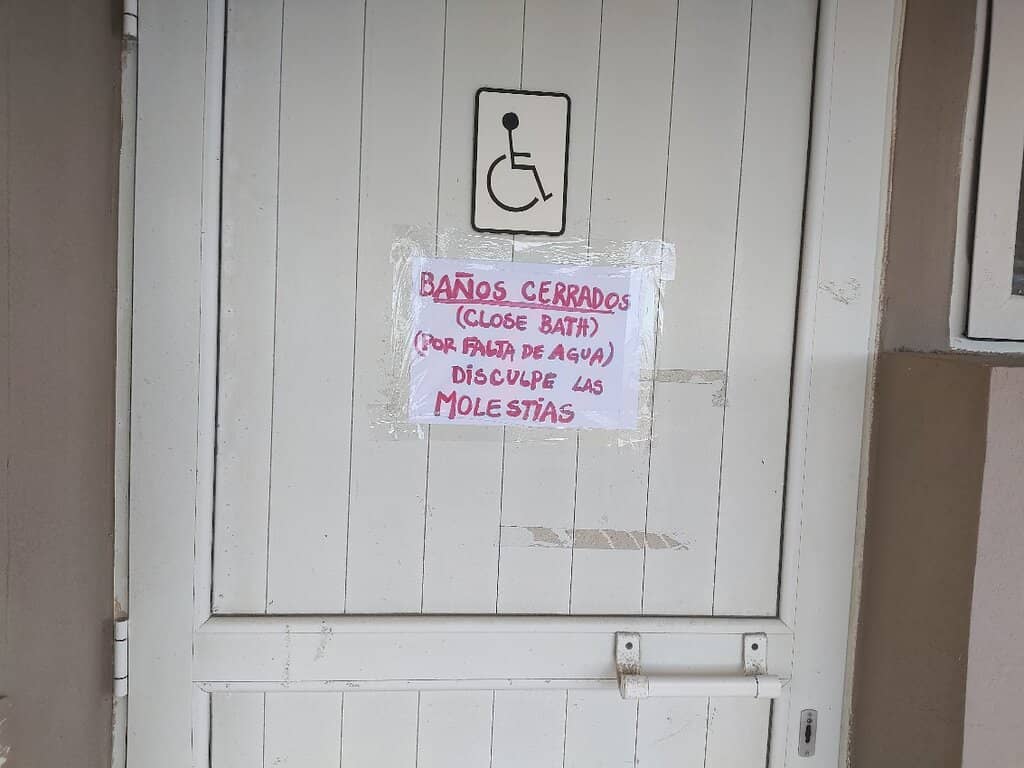 BAÑOS CERRADOS
(CLOSE BATH)
(POR FALTA DE AGUA)
DISCULPE LAS
MOLESTIAS